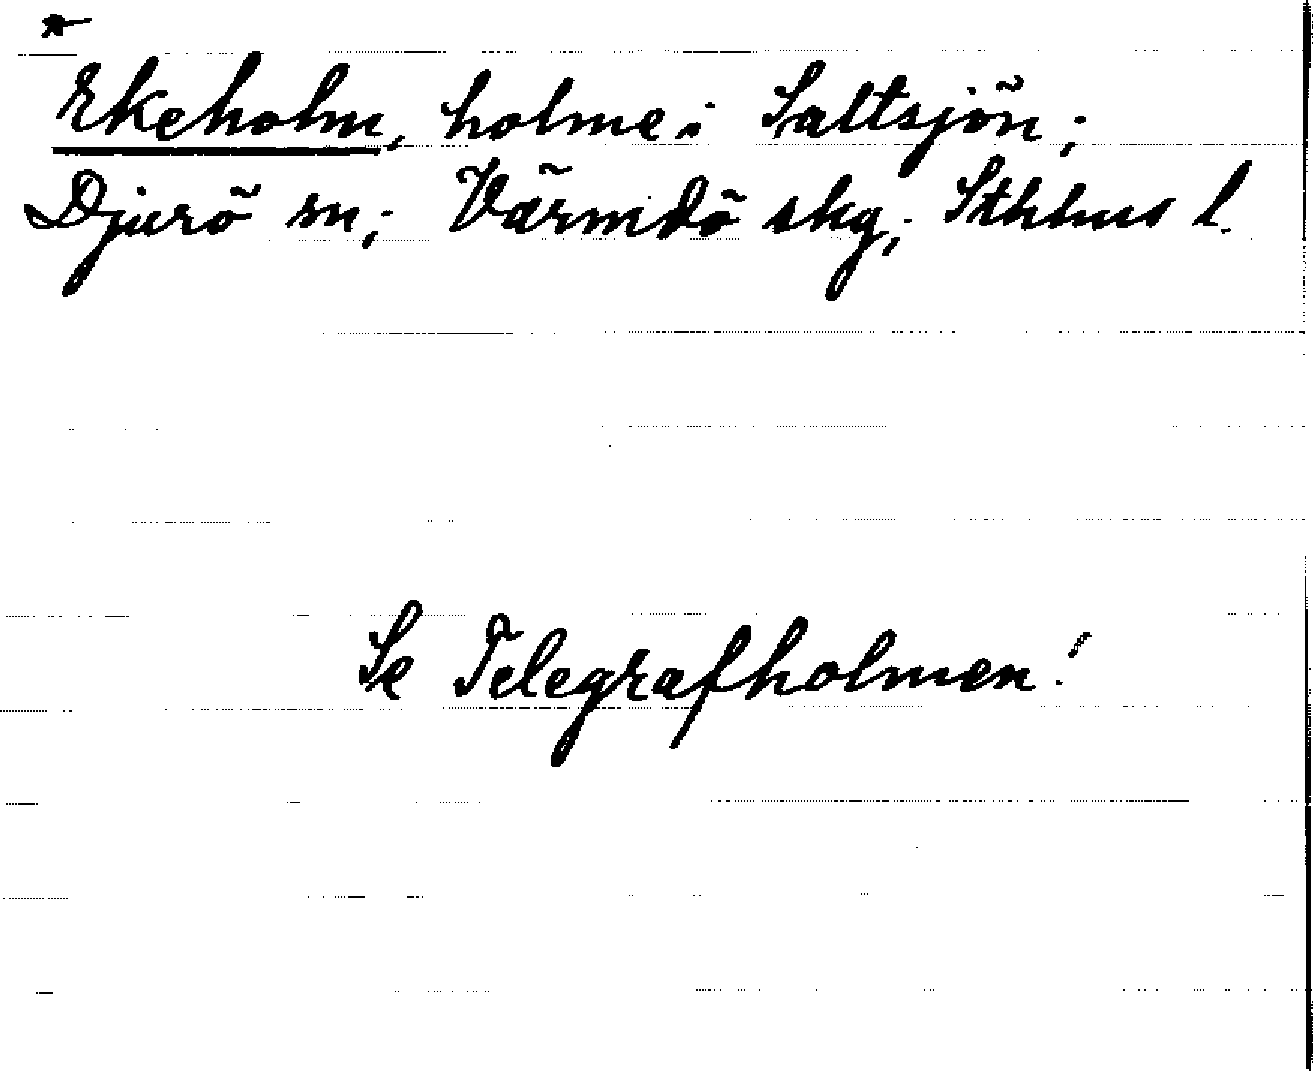 *
Ekeholm, holme i Saltsjön;
Djurö sn; Värmdö skg; Sthlms l.
Se Telegrafholmen!